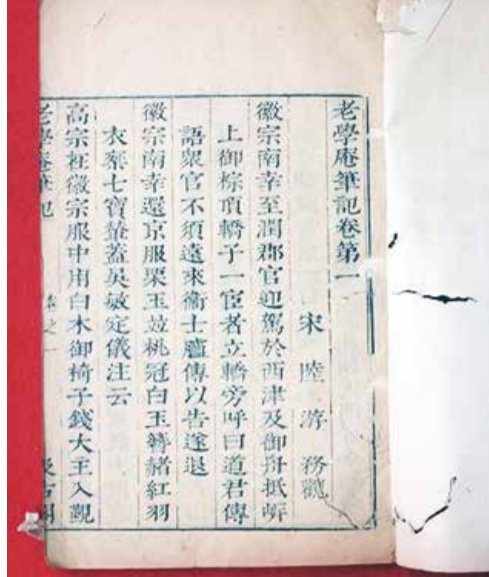 老學庵筆記卷第一
宋 陸 游 務觀
徽宗南幸至潤郡官迎駕於西津及御舟抵岸
上御椶頂轎子一宦者立轎旁呼曰道君傳
語衆官不須遠來衛士臚傳以告遂退
徽宗南幸還京服栗玉竝桃冠白玉簪赭紅羽
衣乘七寶輦蓋吳敏定儀注云
高宗在徽宗服中用白木御椅子錢大主入覲
老學庵筆記 卷之一 汲古閣